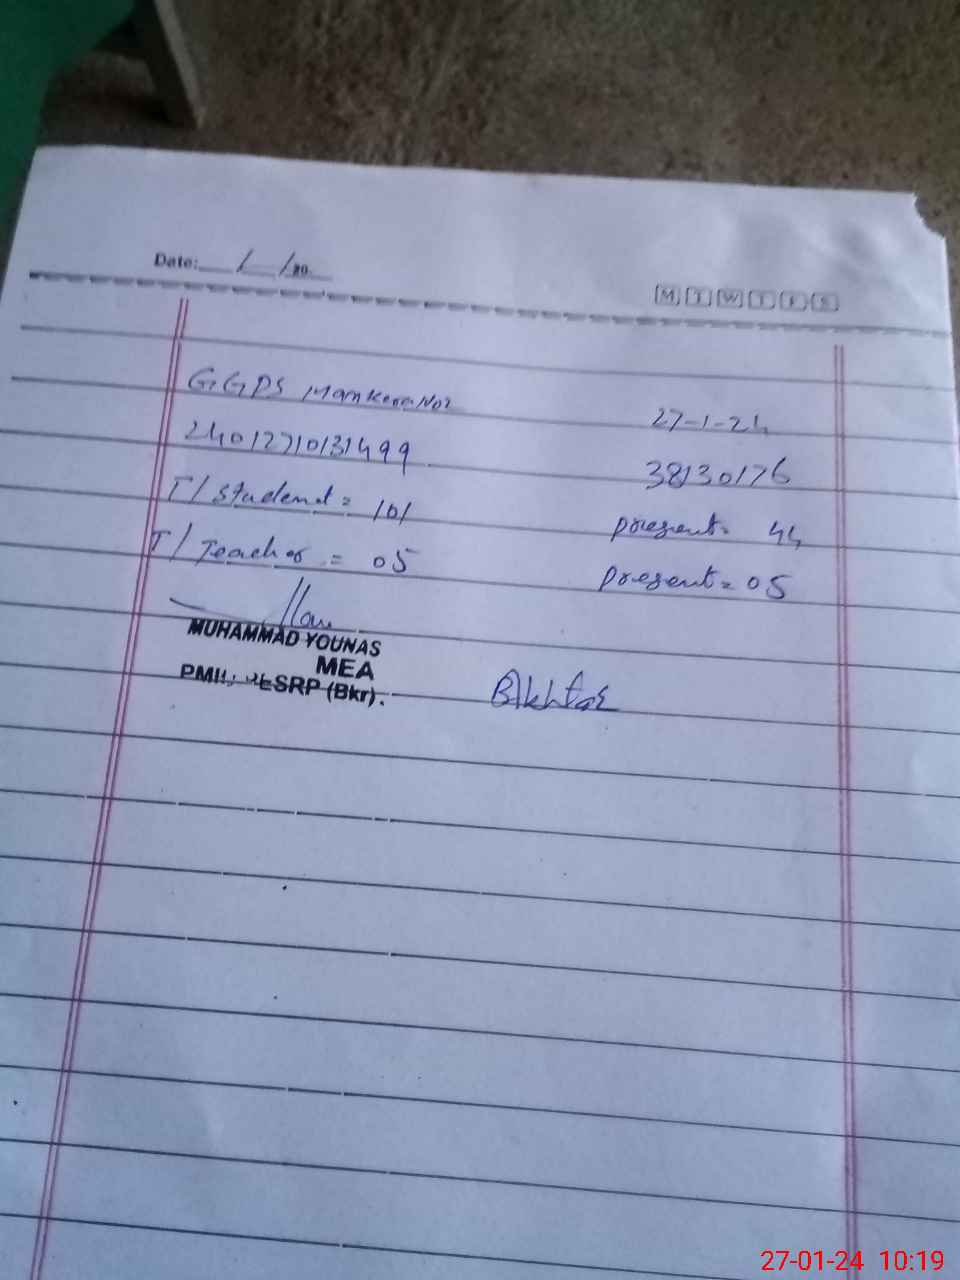 Date: / /20
M T W T F S
GGPS Mankera No2 27-1-24
24012710131499 38130176
T/Student = 101 present = 44
T/Teacher = 05 present = 05
MUHAMMAD YOUNAS
MEA
ESRP (Bkr).
27-01-24 10:19